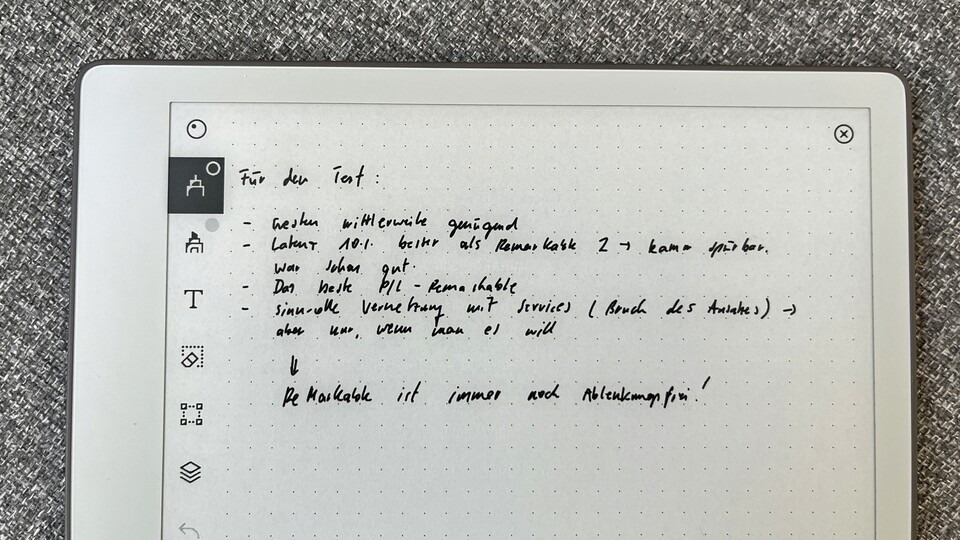 Für den Test:
- Gesten mittlerweile genügend
- Latenz 10% besser als Remarkable 2 → kaum spürbar.
war schon gut.
- Das beste P/L - Remarkable
- sinnvolle Vernetzung mit Services (Bruch des Ansatzes) →
aber nur, wenn man es will
↓
ReMarkable ist immer noch Ablenkungsfrei!
T